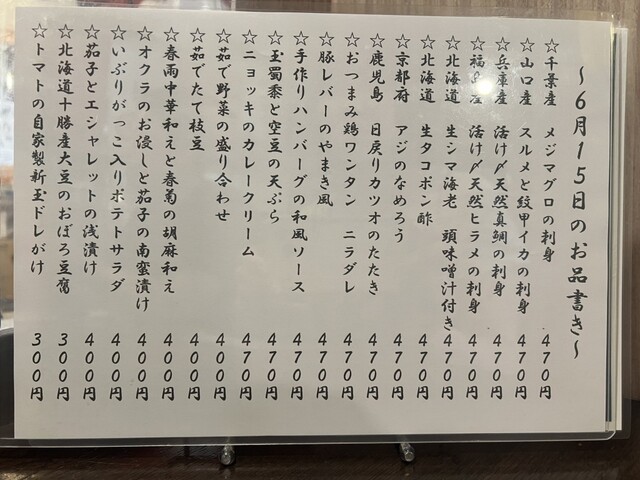 ～6月15日のお品書き～
☆千葉産 メジマグロの刺身 470円
☆山口産 スルメと紋甲イカの刺身 470円
☆兵庫産 活け〆天然真鯛の刺身 470円
☆福兵産 活け〆天然ヒラメの刺身 470円
☆北海道 生シマ海老 頭味噌汁付き 470円
☆北海道 生タコポン酢 470円
☆京都府 アジのなめろう 470円
☆鹿児島 日戻りカツオのたたき 470円
☆おつまみ鶏ワンタン ニラダレ 470円
☆豚レバーのやまき風 470円
☆手作りハンバーグの和風ソース 470円
☆玉蜀黍と空豆の天ぷら 470円
☆ニョッキのカレークリーム 470円
☆茹で野菜の盛り合わせ 400円
☆茹でたて枝豆 400円
☆春雨中華和えと春菊の胡麻和え 400円
☆オクラのお浸しと茄子の南蛮漬け 400円
☆いぶりがっこ入りポテトサラダ 400円
☆茄子とエシャレットの浅漬け 400円
☆北海道十勝産大豆のおぼろ豆腐 300円
☆トマトの自家製新玉ドレがけ 300円